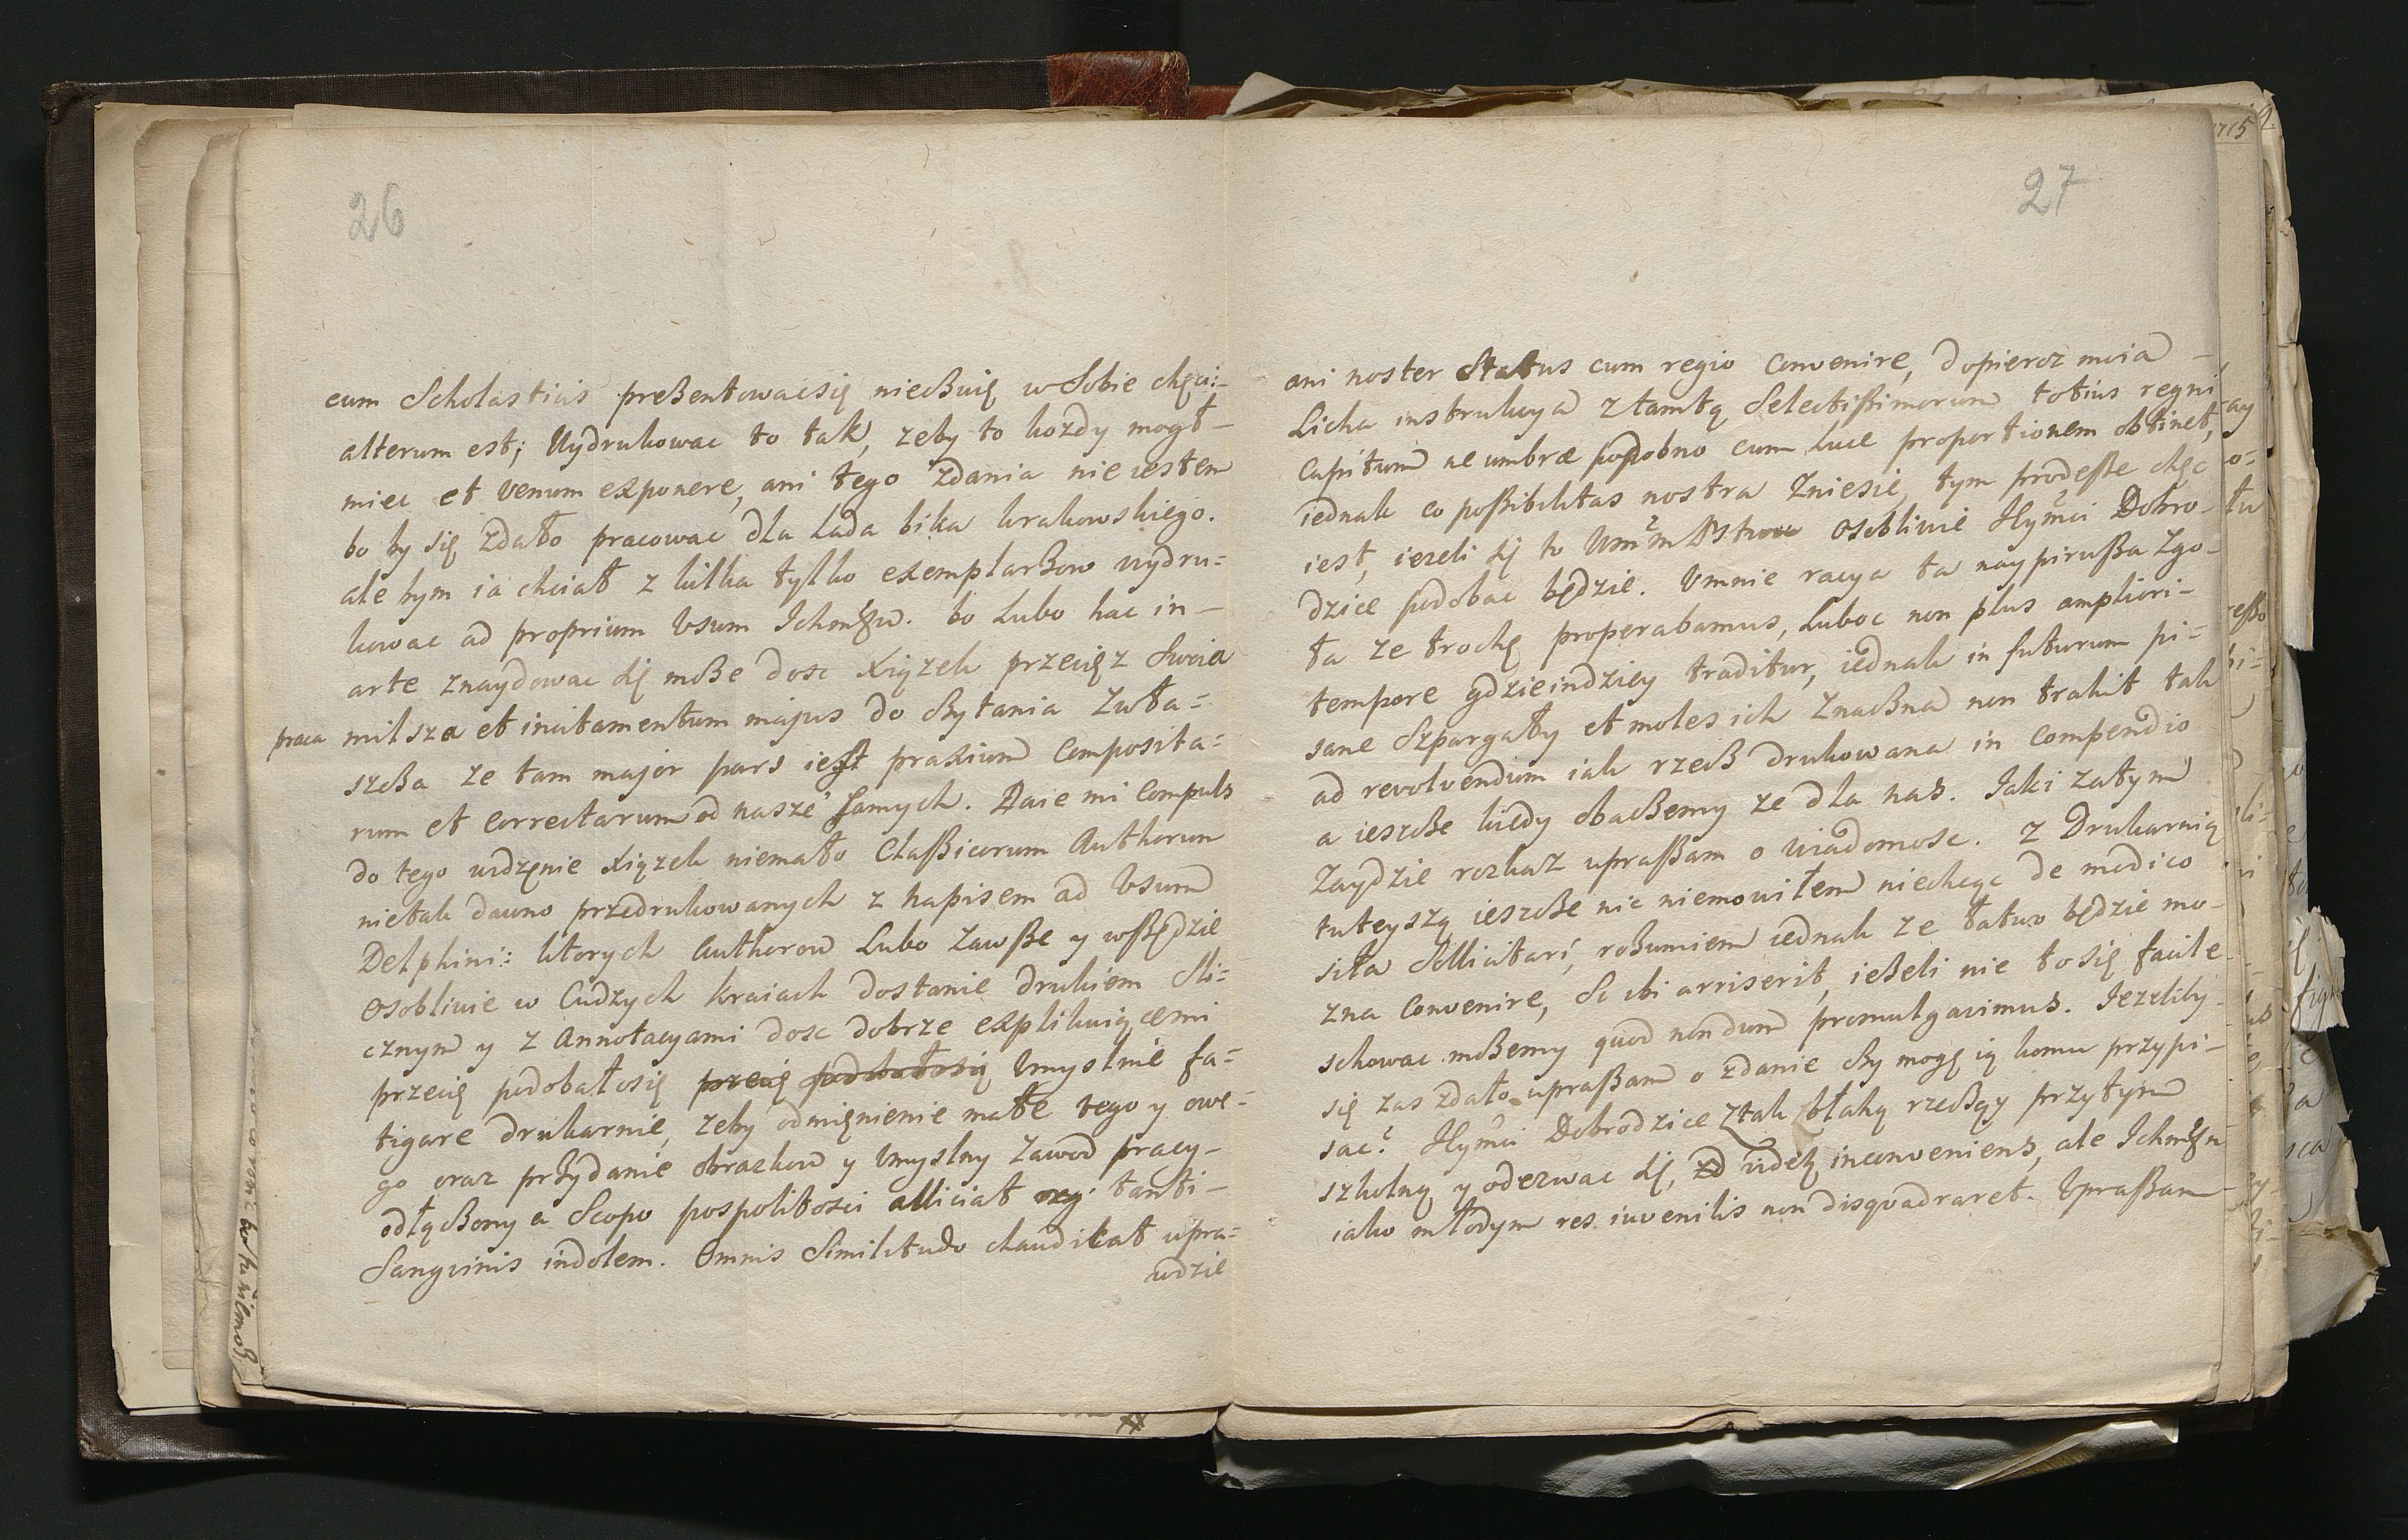 26
eum Scholasticis preßentowac się nieczuię w Sobie chęci:
alterum est; Wydrukowac to tak, zeby to kozdy mogł
miec et venum exponere, ani tego zdania nie iestem
bo by się zdało pracowac dla Lada bika krakowskiego.
ale bym ia chciał z kilka tylko exemplarßow wydru=
kowac ad proprium usum Ichm. bo Lubo hac in
arte znaydowac moße dosc Xiązek przecięz Swoia
praca milsza et incitamentum majus do Czytania Zwła=
szcßa ze tam major pars iest praxium Composita=
rum et correctarum od nasze samych. Daie mi Compuls
do tego wdzęnie Xiązek niemało Claßicorum Authorum
nietak dawno przedrukowanych z napisem ad Usum
Delphini: ktorych Authorow Lubo Zawsße y wßędzie
osobliwie w Cudzych kraiach dostanie drukiem Sli=
cznym y z Annotacyami dosc dobrze explikuiącemi
przecię podobałosię przecię podobałosię Umyslnie fa=
tigare drukarnie, zeby odmięnienie małe tego y owe=
go oraz przydanie obrazkow y Umyslny Zawod pracy
odłącßony a Scopo pospolitosci alliciat tanti
Sangvinis indolem. Omnis Similitudo claudicat wpra=
wdzie
27
ani noster Status cum regio Convenire, dopieroz moia
Licha instrukcya z tamtą Selectißimorum totius regni
Capitum ne umbræ podobno cum Luce proportionem obtinet,
iednak co poßibilitas nostra Zniesie, tym prodeße chęc
iest, iezeli to osobliwie Jłymci Dobro=
dzice podobac będzie. Umnie racya ta naypirwßa Zgo=
ta ze trochę properabamus, Luboc non plus ampliori
tempore gdzieindziey traditur, iednak in futurum pi=
sane Szpargały et moles ich Znacßna non trahit tak
ad revolvendum iak rzecß drukowana in compendio
a ieszcße kiedy obacßemy ze dla nas. Jaki Zatym
Zaydzie rozkaz upraßam o wiadomosc. Z Drukarnią
tuteyszą ieszcße nic niemowiłem niechcąc de modico
siła Sollicitari, roßumiem iednak ze łatwo będzie mo=
zna Convenire, Si ibi arriserit, ießeli nie to się facile
schowac moßemy quod nondum promulgavimus. Jezeliby
się zas zdało upraßam o zdanie cßy mogę ią komu przypi=
sac? Jłymci Dobrodzice Ztak błahą rzecßą przytym
szkolną y odezwac inconveniens, ale
iako młodym res iuvenilis non disqvadraret. Upraßam